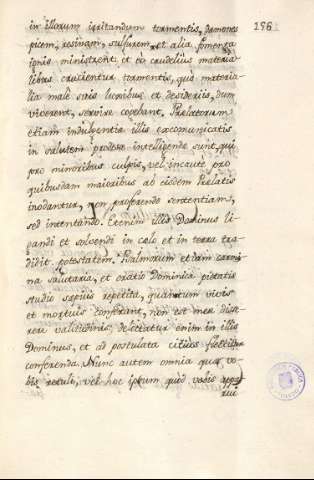 256
in illorum irritandum tormentis, dæmones
picem, resinam, sulfurem, et alia fomenta
ignis ministrent et eo crudelius materia-
libus crucientur tormentis, quo materia-
lia male suis luxibus et desideriis, dum
viverent, servire cogebant. Prelatorum
etiam indulgentiæ illis excomunicatis
in salutem prodesse intelligendæ sunt, qui
pro minoribus culpis, vel incaute pro
quibusdam maioribus ab eisdem Prelatis
inodantur, non proferendo sententiam,
sed intentando. Etenim illis Dominus li-
gandi et solvendi in celo et in terra tra-
didit potestatem. Psalmorum etiam carmi-
na salutaria, et oratio Dominica pietatis
studio sepius repetita, quantum vivis
et mortuis conferant, non est meæ disse-
rere valitudinis, delectatur enim in illis
Dominus, et ad postulata citius flectitur
conferenda. Nunc autem omnia quæ vo-
bis retuli, vel hoc ipsum quod vobis
rui